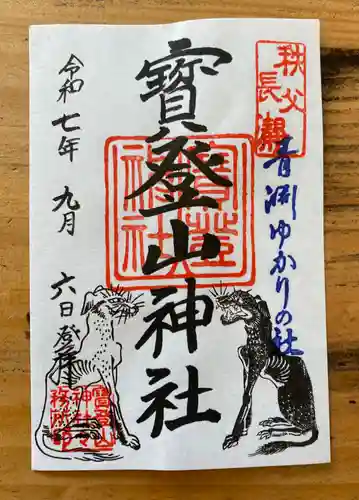 秩父
長瀞
青淵ゆかりの社
寶登山神社
寶登
山
神社
令和七年九月六日登拝
寶登山
神社
務所印